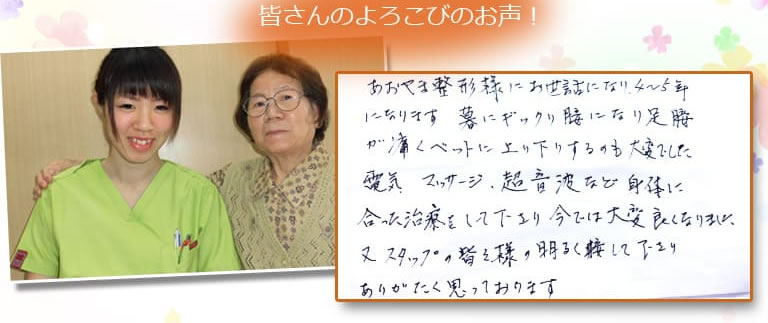 皆さんのよろこびのお声!
あおやま整形様にお世話になり、4~5年
になります 暮にギックリ腰になり足腰
が痛くベットに上り下りするのも大変でした
電気 マッサージ、超音波など身体に
合った治療をして下さり今では大変良くなりました
又スタッフの皆え様の明るく接して下さり
ありがたく思っております